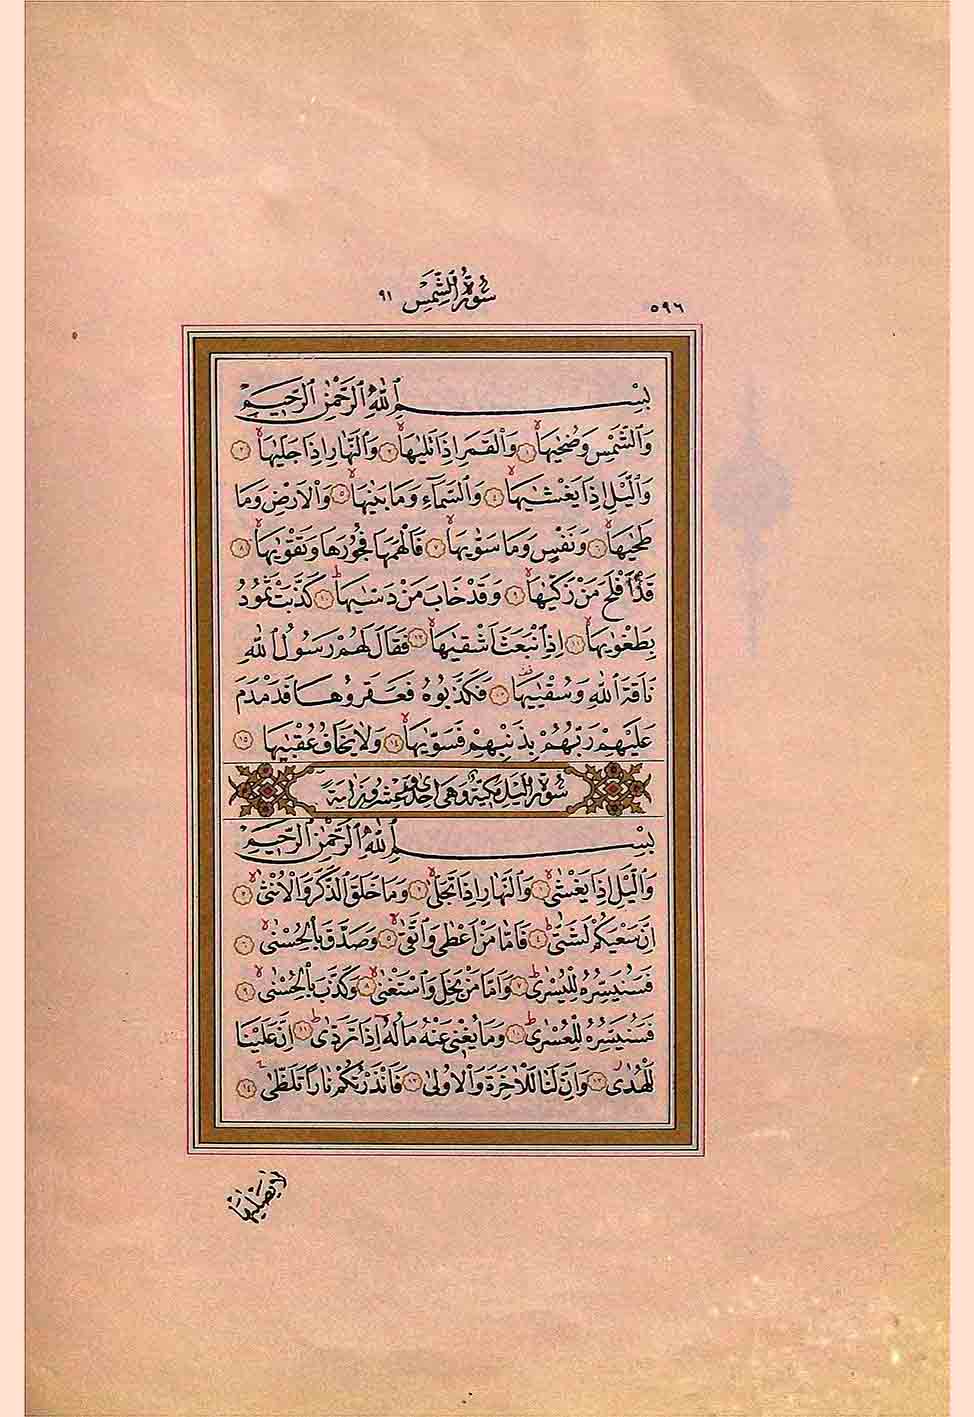 ٥٩٦ سُورَةُ الشَّمْسِ ٩١
بِسْمِ اللّٰهِ الرَّحْمٰنِ الرَّحِيمِ
وَالشَّمْسِ وَضُحٰيهَاۙ ﴿١﴾ وَالْقَمَرِ اِذَا تَلٰيهَاۙ ﴿٢﴾ وَالنَّهَارِ اِذَا جَلّٰيهَاۙ ﴿٣﴾
وَالَّيْلِ اِذَا يَغْشٰيهَاۙ ﴿٤﴾ وَالسَّمَٓاءِ وَمَا بَنٰيهَاۙ ﴿٥﴾ وَالْاَرْضِ وَمَا
طَحٰيهَاۙ ﴿٦﴾ وَنَفْسٍ وَمَا سَوّٰيهَاۙ ﴿٧﴾ فَاَلْهَمَهَا فُجُورَهَا وَتَقْوٰيهَاۙ ﴿٨﴾
قَدْ اَفْلَحَ مَنْ زَكّٰيهَاۙ ﴿٩﴾ وَقَدْ خَابَ مَنْ دَسّٰيهَاۜ ﴿١٠﴾ كَذَّبَتْ ثَمُودُ
بِطَغْوٰيهَاۙ ﴿١١﴾ اِذِ انْبَعَثَ اَشْقٰيهَاۙ ﴿١٢﴾ فَقَالَ لَهُمْ رَسُولُ اللّٰهِ
نَاقَةَ اللّٰهِ وَسُقْيٰيهَا ﴿١٣﴾ فَكَذَّبُوهُ فَعَقَرُوهَا فَدَمْدَمَ
عَلَيْهِمْ رَبُّهُمْ بِذَنْبِهِمْ فَسَوّٰيهَاۙ ﴿١٤﴾ وَلَا يَخَافُ عُقْبٰيهَا ﴿١٥﴾
سُورَةُ الَّيْلِ مَكِّيَّةٌ وَهِيَ اِحْدٰى وَعِشْرُونَ اٰيَةً
بِسْمِ اللّٰهِ الرَّحْمٰنِ الرَّحِيمِ
وَالَّيْلِ اِذَا يَغْشٰىۙ ﴿١﴾ وَالنَّهَارِ اِذَا تَجَلّٰىۙ ﴿٢﴾ وَمَا خَلَقَ الذَّكَرَ وَالْاُنْثٰىۙ ﴿٣﴾
اِنَّ سَعْيَكُمْ لَشَتّٰىۜ ﴿٤﴾ فَاَمَّا مَنْ اَعْطٰى وَاتَّقٰىۙ ﴿٥﴾ وَصَدَّقَ بِالْحُسْنٰىۙ ﴿٦﴾
فَسَنُيَسِّرُهُ لِلْيُسْرٰىۜ ﴿٧﴾ وَاَمَّا مَنْ بَخِلَ وَاسْتَغْنٰىۙ ﴿٨﴾ وَكَذَّبَ بِالْحُسْنٰىۙ ﴿٩﴾
فَسَنُيَسِّرُهُ لِلْعُسْرٰىۜ ﴿١٠﴾ وَمَا يُغْنٖي عَنْهُ مَالُهُٓ اِذَا تَرَدّٰىۜ ﴿١١﴾ اِنَّ عَلَيْنَا
لَلْهُدٰىۘ ﴿١٢﴾ وَاِنَّ لَنَا لَلْاٰخِرَةَ وَالْاُولٰى ﴿١٣﴾ فَاَنْذَرْتُكُمْ نَارًا تَلَظّٰىۚ ﴿١٤﴾
لَا يَصْلٰيهَا